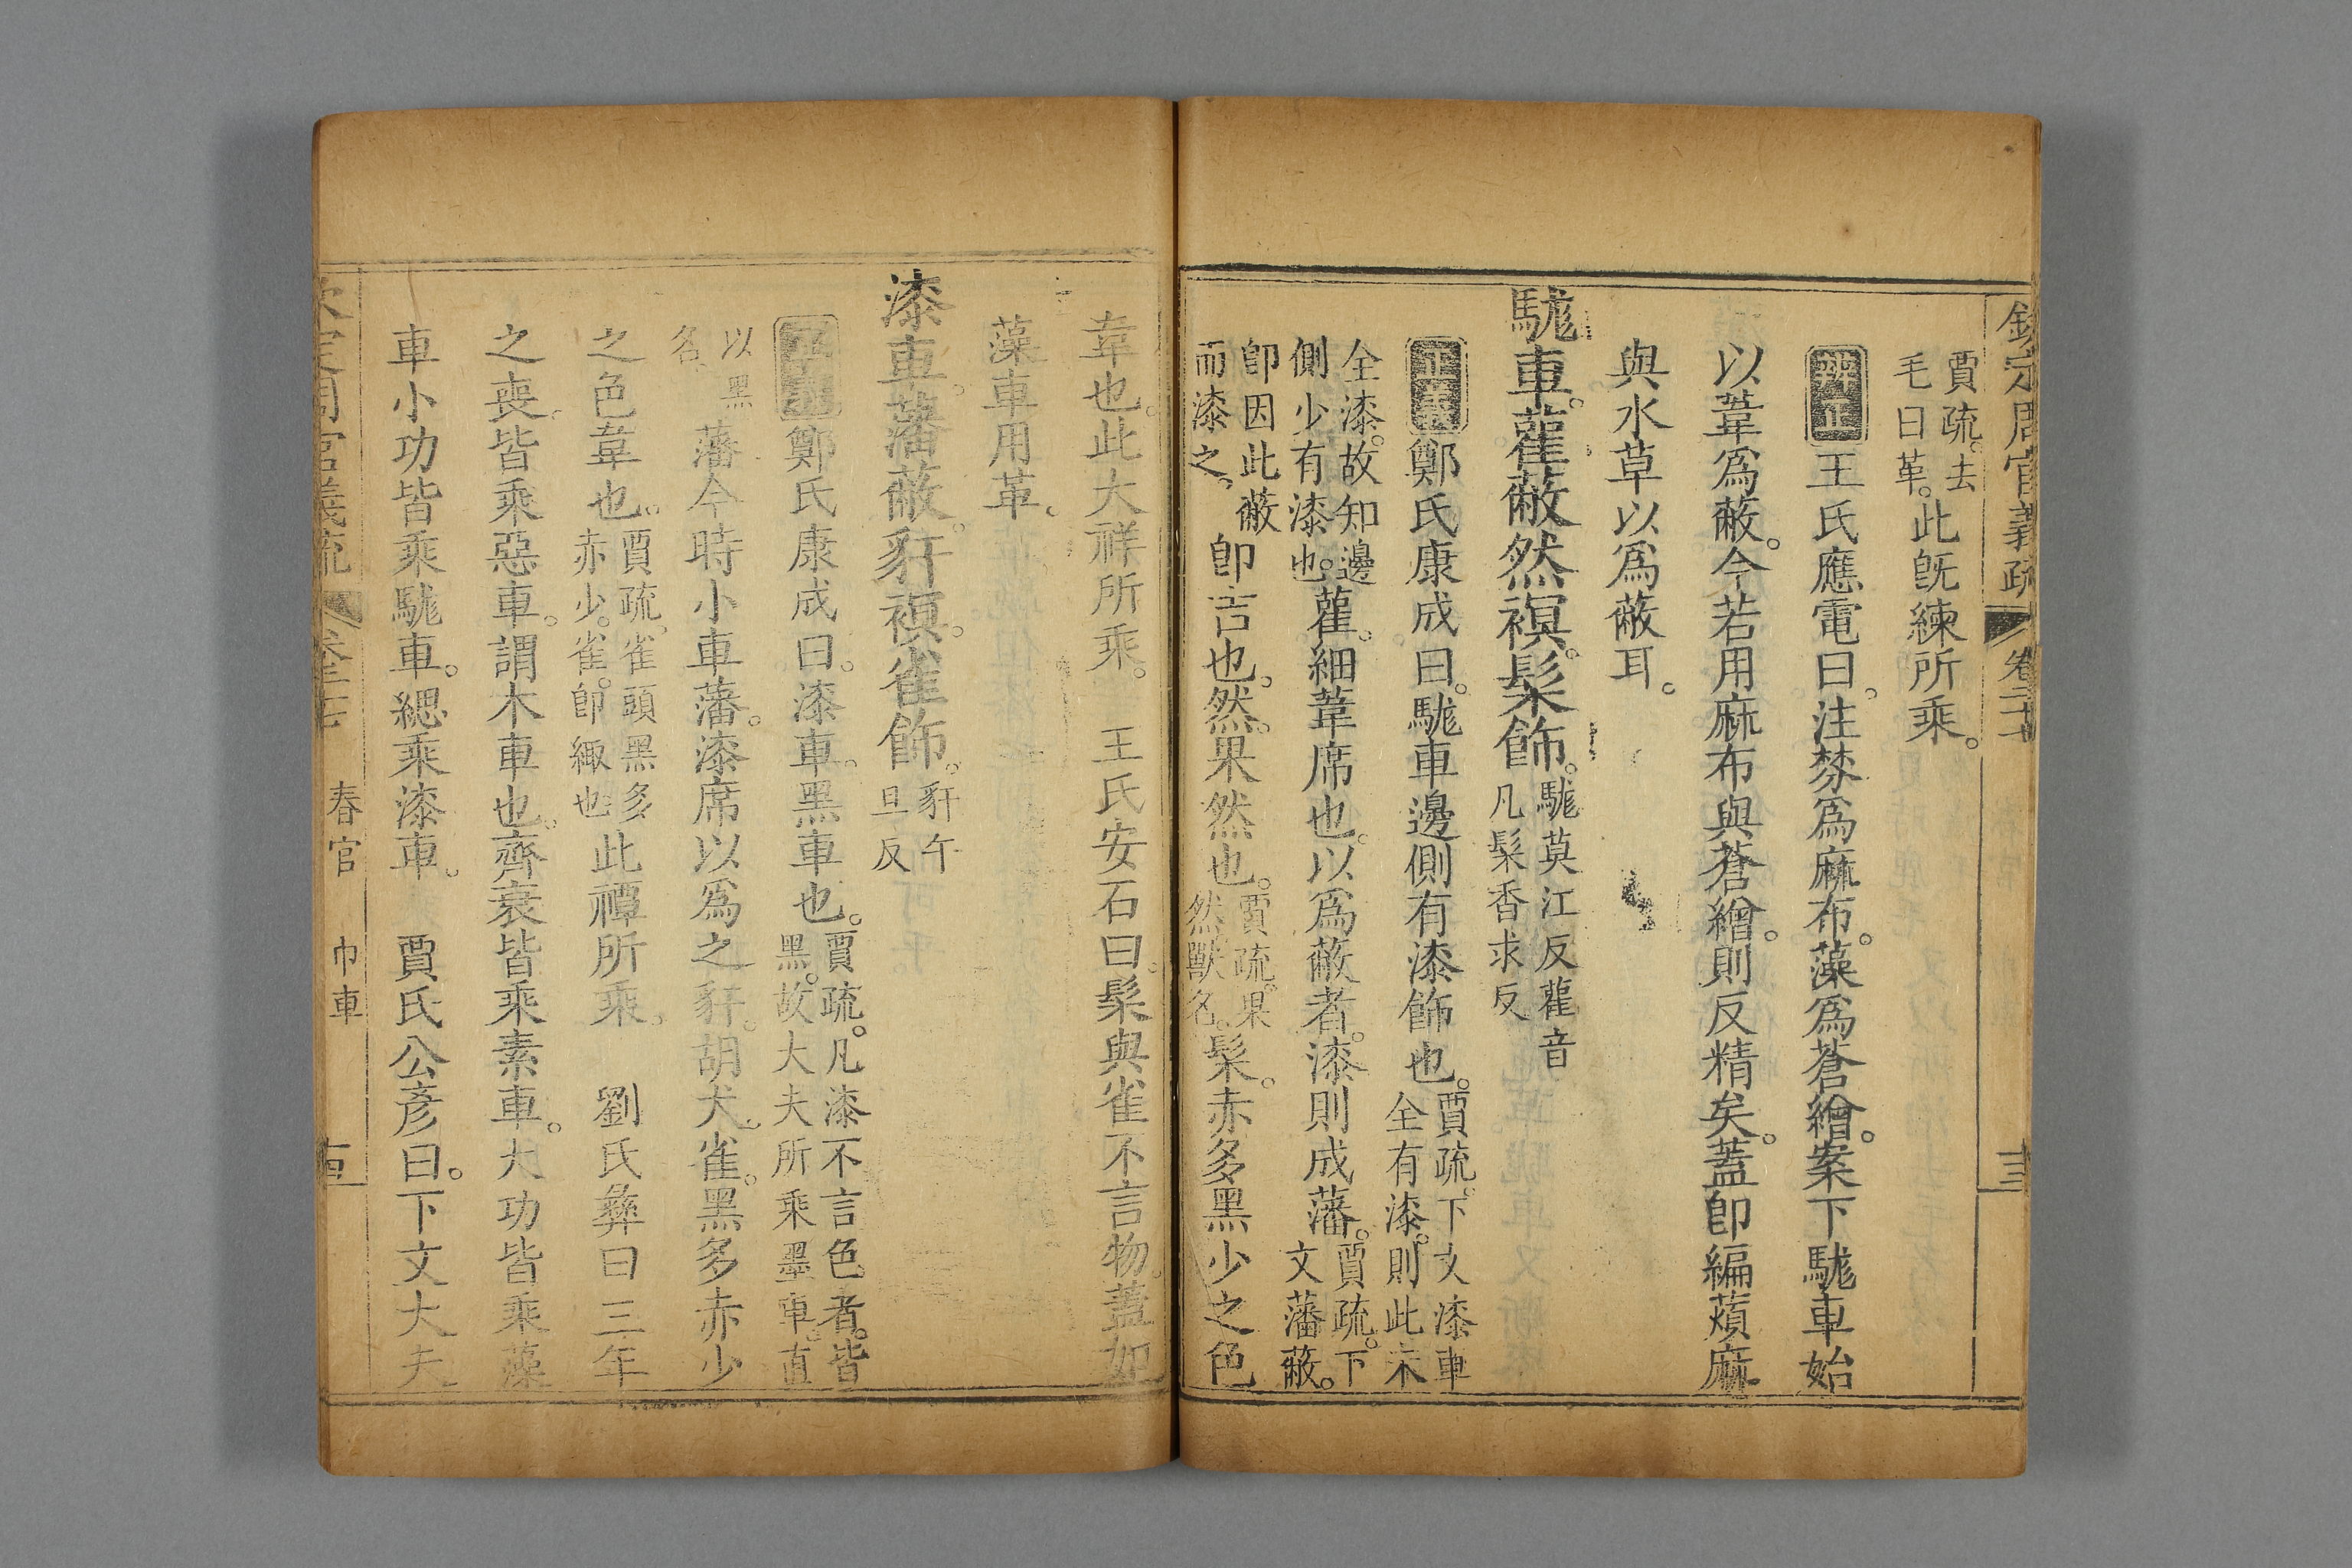 欽定周官義疏 卷二十七
賈疏。去毛曰革。此旣練所乘。
辨正王氏應電曰。注棼爲麻布。藻爲蒼繒。案下駹車始
以葦爲蔽。今若用麻布與蒼繒。則反精矣。蓋卽編薠麻
與水草以爲蔽耳。
駹車。雚蔽。然𧜀。髹飾。駹莫江反雚音凡髹香求反
正義鄭氏康成曰。駹車邊側有漆飾也。賈疏。下文漆車全有漆。則此未
全漆。故知邊側少有漆也。雚。細葦席也。以爲蔽者。漆則成藩。賈疏。下文藩蔽。
卽因此蔽而漆之。卽言也。然。果然也。賈疏。果然。獸名。髹。赤多黑少之色
韋也。此大祥所乘。 王氏安石曰。髹與雀不言物。蓋如
藻車用革。
漆車。藩蔽。豻𧜀。雀飾。豻午旦反
正義鄭氏康成曰。漆車。黑車也。賈疏。凡漆不言色者。皆黑。故大夫所乘墨車。直
以黑名。藩今時小車藩。漆席以爲之。豻。胡犬。雀。黑多赤少
之色韋也。賈疏。雀頭黑多赤少。雀。卽緅也此禫所乘。 劉氏彝曰三年
之喪。皆乘惡車。謂木車也。齊衰皆乘素車。大功皆乘藻
車小功皆乘駹車。緦乘漆車。 賈氏公彥曰。下文大夫
春官 巾車